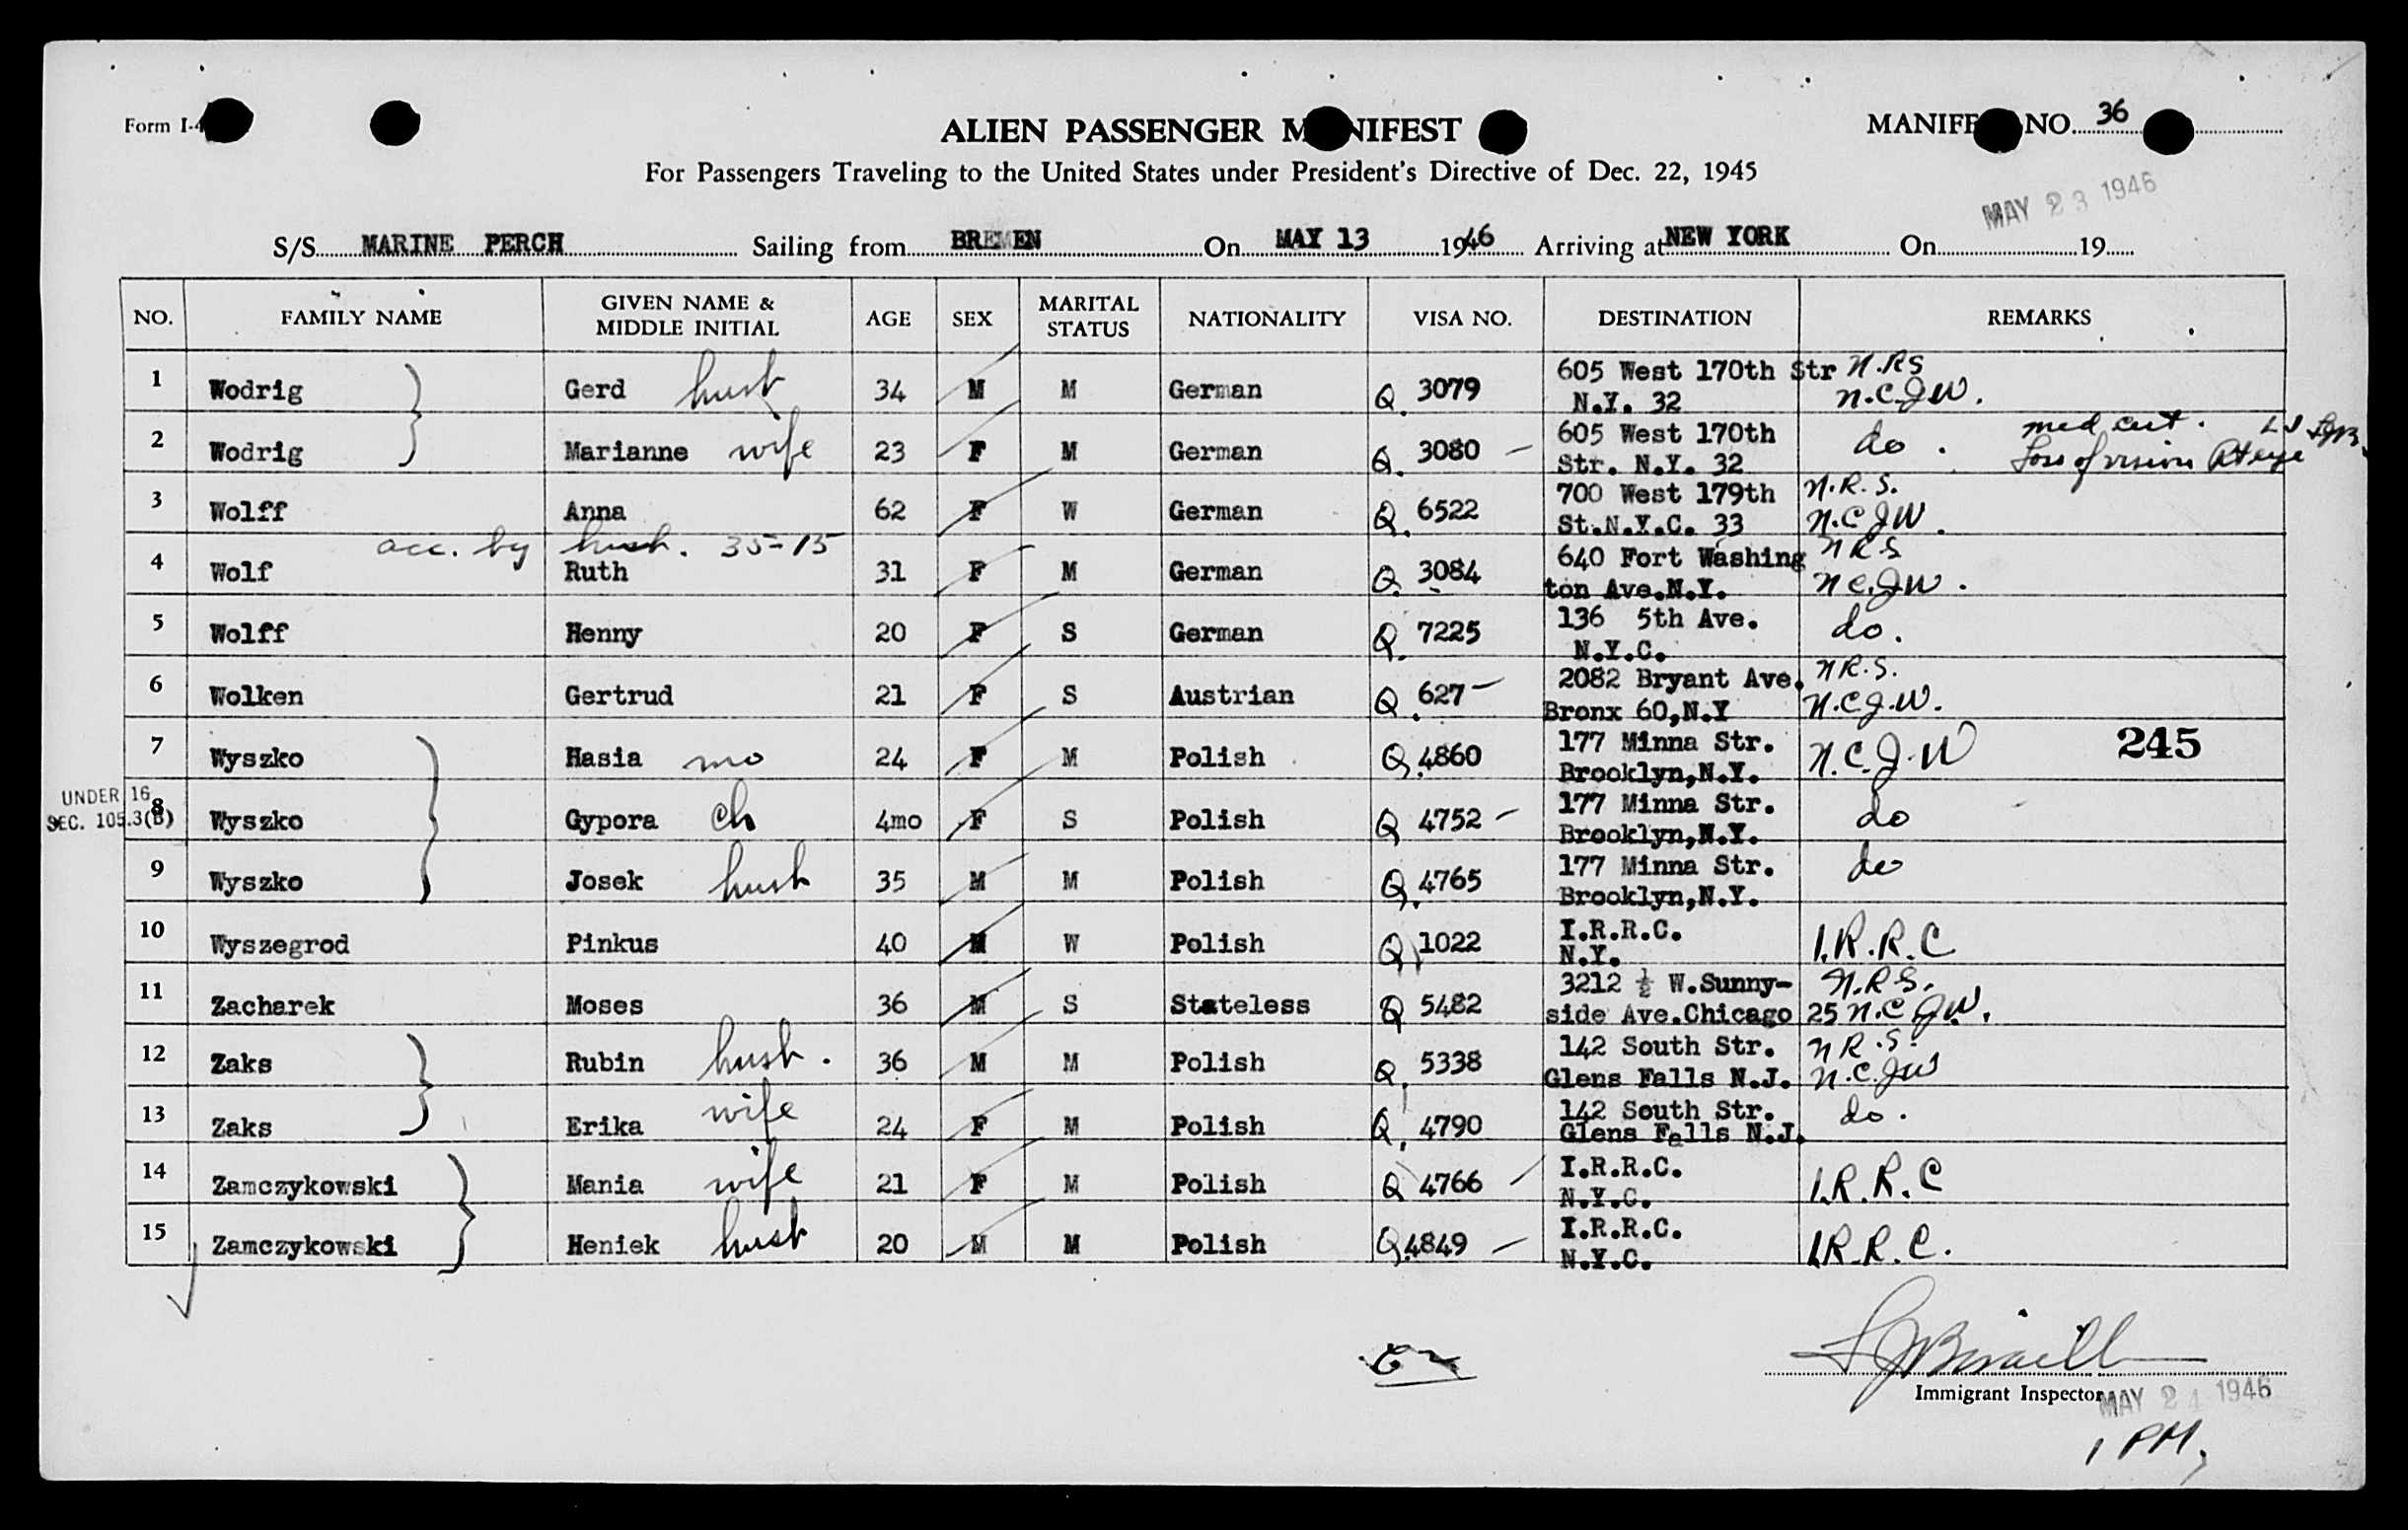 Form I-4
ALIEN PASSENGER MANIFEST
MANIFEST NO. 36
For Passengers Traveling to the United States under President's Directive of Dec. 22, 1945
MAY 23 1946
S/S MARINE PERCH Sailing from BREMEN On MAY 13 1946 Arriving at NEW YORK On 19
NO. FAMILY NAME GIVEN NAME & MIDDLE INITIAL AGE SEX MARITAL STATUS NATIONALITY VISA NO. DESTINATION REMARKS
1 Wodrig Gerd husb 34 M M German Q. 3079 605 West 170th Str N.Y. 32 N.R.S N.C.J.W.
2 Wodrig Marianne wife 23 F M German Q. 3080 – 605 West 170th Str. N.Y. 32 do. med cert. Loss of vision Rt eye
3 Wolff Anna 62 F W German Q. 6522 700 West 179th St.N.Y.C. 33 N.R.S. N.C.J.W.
acc. by husb. 35-15
4 Wolf Ruth 31 F M German Q. 3084 640 Fort Washington Ave.N.Y. N R S N.C.J.W.
5 Wolff Henny 20 F S German Q. 7225 136 5th Ave. N.Y.C. do.
6 Wolken Gertrud 21 F S Austrian Q. 627 – 2082 Bryant Ave. Bronx 60,N.Y N.R.S. N.C.J.W.
7 Wyszko Hasia mo 24 F M Polish Q.4860 177 Minna Str. Brooklyn,N.Y. N.C.J.W 245
UNDER 16
SEC. 105.3(B)
8 Wyszko Gypora ch 4mo F S Polish Q 4752 – 177 Minna Str. Brooklyn,N.Y. do
9 Wyszko Josek husb 35 M M Polish Q.4765 177 Minna Str. Brooklyn,N.Y. do
10 Wyszegrod Pinkus 40 M W Polish Q 1022 I.R.R.C. N.Y. I.R.R.C
11 Zacharek Moses 36 M S Stateless Q 5482 3212 ½ W.Sunny-side Ave.Chicago 25 N.R.S. N.C.J.W.
12 Zaks Rubin husb. 36 M M Polish Q. 5338 142 South Str. Glens Falls N.J. N.R.S. N.C.J.W
13 Zaks Erika wife 24 F M Polish Q. 4790 142 South Str. Glens Falls N.J. do.
14 Zamczykowski Mania wife 21 F M Polish Q 4766 I.R.R.C. N.Y.C. I.R.R.C
15 Zamczykowski Heniek husb 20 M M Polish Q.4849 – I.R.R.C. N.Y.C. I.R.R.C.
Immigrant Inspector
MAY 24 1946
1 PM,